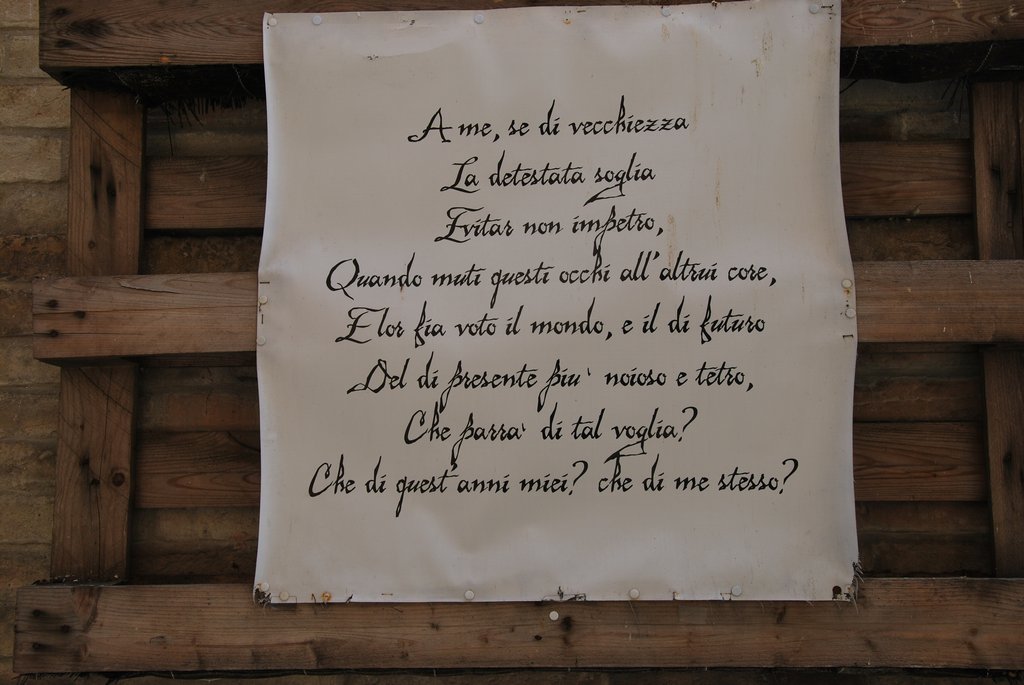 A me, se di vecchiezza
La detestata soglia
Evitar non impetro,
Quando muti questi occhi all'altrui core,
E lor fia voto il mondo, e il di futuro
Del di presente piu' noioso e tetro,
Che parra' di tal voglia?
Che di quest'anni miei? che di me stesso?